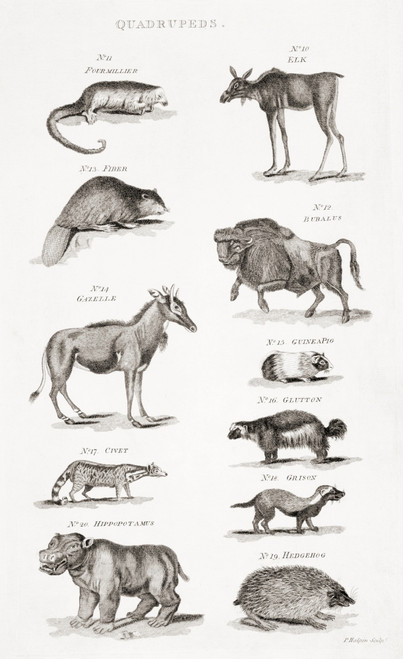 QUADRUPEDS.
No. 11
FOURMILLIER
No. 10
ELK
No. 13. FIBER
No. 12.
BUBALUS
No. 14
GAZELLE
No. 15. GUINEA PIG
No. 16. GLUTTON
No. 17. CIVET
No. 18. GRISON
No. 20. HIPPOPOTAMUS
No. 19. HEDGEHOG
sculp.